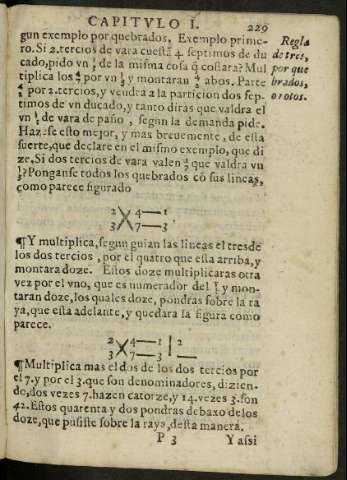 CAPITVLO I. 229
gun exemplo por quebrados. Exemplo prime-
ro. Si 2. tercios de vara cuestã 4. septimos de du
cado, pido vn ⅓ de la misma cosa q̃ costara? Mul
tiplica los 4/7 por vn ⅓ y montaran 4/21 abos. Parte
por 2. tercios, y vendra a la particion dos sep-
timos de vn ducado, y tanto diras que valdra el
vn ⅓ de vara de paño, segun la demanda pide.
Hazese esto mejor, y mas breuemente, de esta
suerte, que declare en el mismo exemplo, que di
ze. Si dos tercios de vara valen 4/7 que valdra vn
⅓? Ponganse todos los quebrados cõ sus lineas,
como parece figurado
Regla
de tres,
por que
brados,
o rotos.
2 4 1
3 7 3
¶Y multiplica, segun guian las lineas el tres de
los dos tercios, por el quatro que esta arriba, y
montara doze. Estos doze multiplicaras otra
vez por el vno, que es numerador del ⅓ y mon-
taran doze, los quales doze, pondras sobre la ra
ya, que esta adelante, y quedara la figura como
parece.
2 4 1 12
3 7 3
¶Multiplica mas el dos de los dos tercios por
el 7. y por el 3. que son denominadores, dizien-
do, dos vezes 7. hazen catorze, y 14. vezes 3. son
42. Estos quarenta y dos pondras debaxo de los
doze, que pusiste sobre la raya, desta manera.
P 3 Y assi